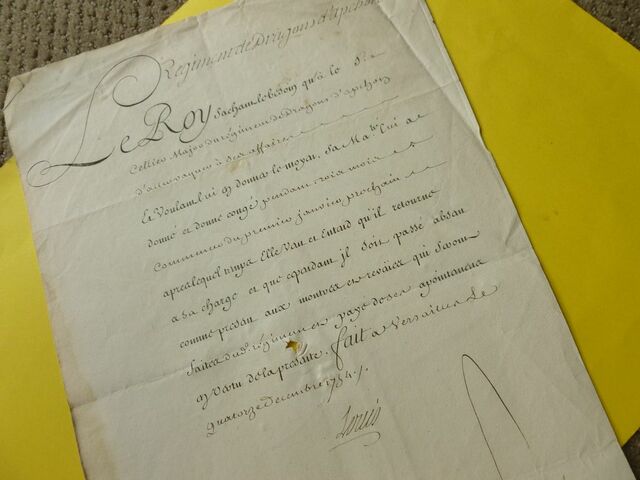 Regiment de Dragons d'apchon
Le Roy Sachant le besoin qu'à le Sr.
Cellier Major du régiment de Dragons d'apchon
d'aller vaquer à ses affaires
Et Voulant lui en donner le moyen, Sa Maté. lui a
donné et donne congé pendant trois mois
Commencer du premier janvier prochain
apres lequel temps Elle Veut et Entend qu'il retourne
a Sa charge et que cependant jl Soit passé absent
comme present aux montres et reveües qui Seront
faites dud. régiment et payé de ses apointemens
en Vertu de la presente. fait a Versailles Le
quatorze Decembre 1754.
Louis